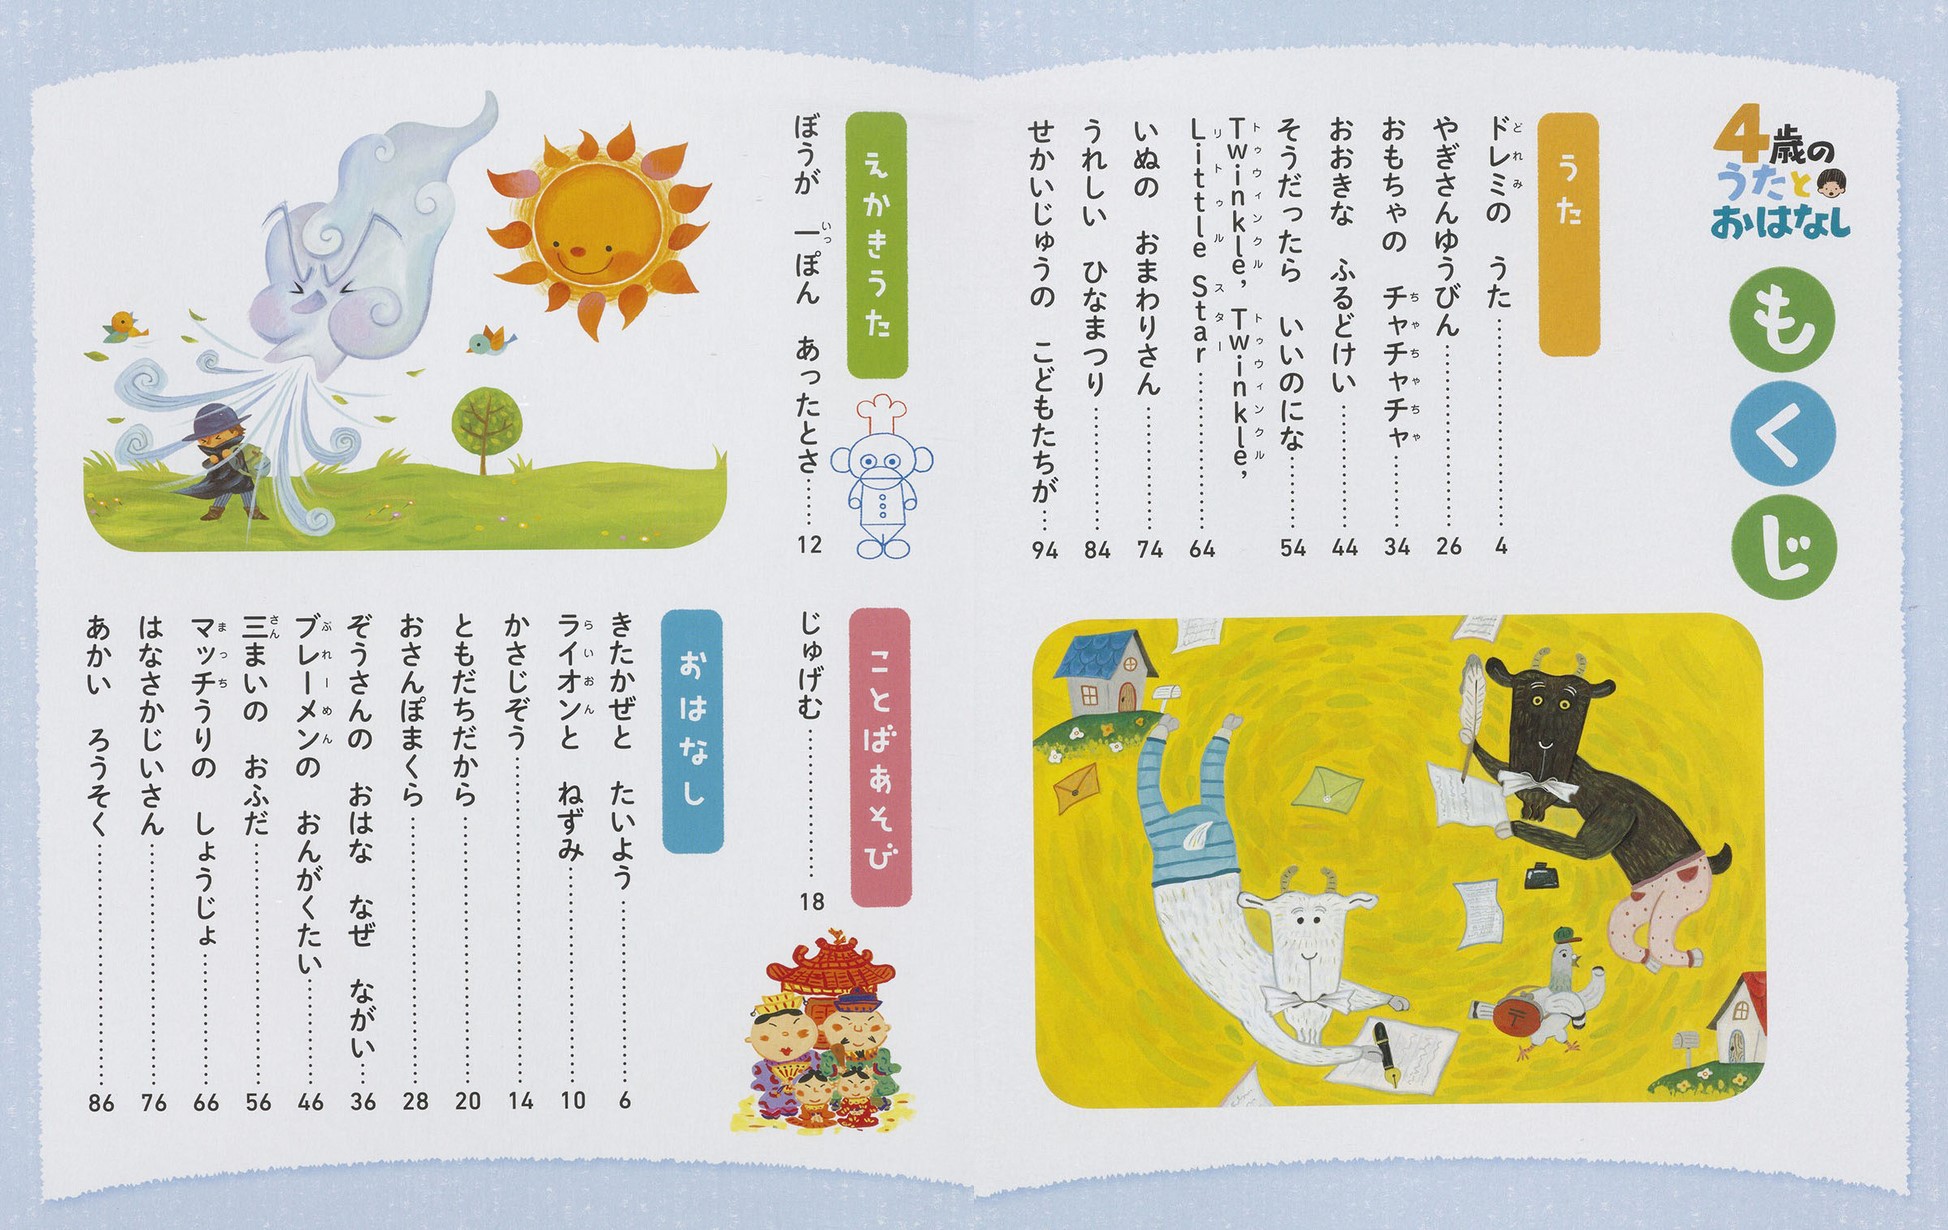 4歳の
うたと
おはなし
もくじ
うた
ドレミの　うた…………4
どれみ
やぎさんゆうびん…………26
おもちゃの　チャチャチャ…………34
ちゃちゃちゃ
おおきな　ふるどけい…………44
そうだったら　いいのにな…………54
Twinkle, Twinkle,
トゥウィンクル　トゥウィンクル
Little Star…………64
リトゥル　スター
いぬの　おまわりさん…………74
うれしい　ひなまつり…………84
せかいじゅうの　こどもたちが…………94
えかきうた
ぼうが　一ぽん　あったとさ…………12
いっ
ことばあそび
じゅげむ…………18
おはなし
きたかぜと　たいよう…………6
ライオンと　ねずみ…………10
らいおん
かさじぞう…………14
ともだちだから…………20
おさんぽまくら…………28
ぞうさんの　おはな　なぜ　ながい…………36
ブレーメンの　おんがくたい…………46
ぶれーめん
三まいの　おふだ…………56
さん
マッチうりの　しょうじょ…………66
まっち
はなさかじいさん…………76
あかい　ろうそく…………86
〒